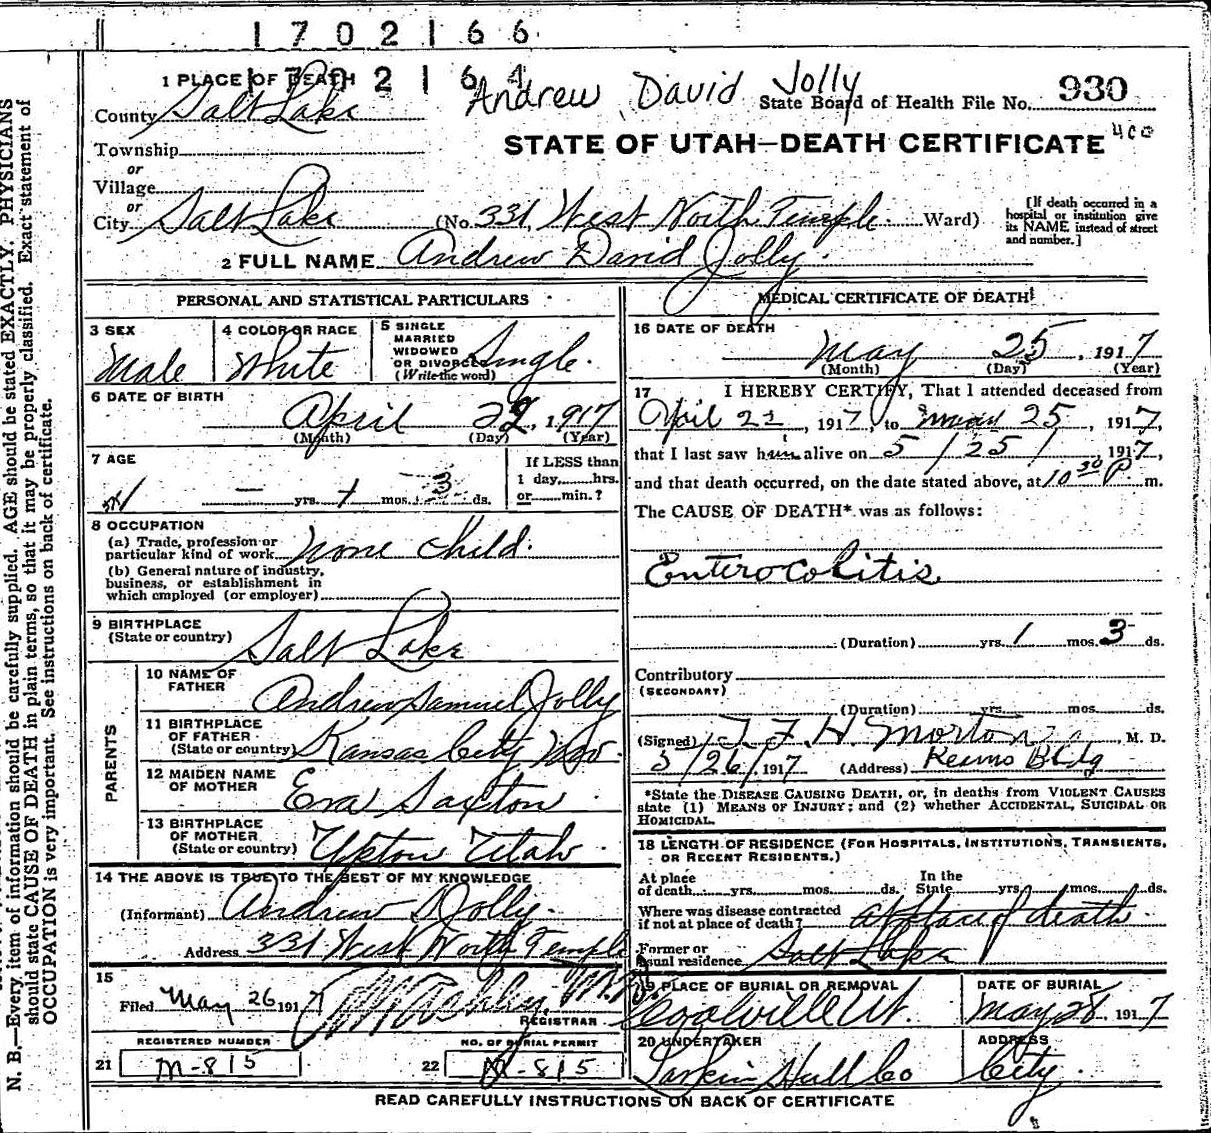 1702166
1 PLACE OF DEATH
170 2 1 6 4
Andrew David Jolly
County Salt Lake
State Board of Health File No. 930
Township
STATE OF UTAH—DEATH CERTIFICATE 400
or
Village
or
City Salt Lake (No. 331, West North Temple Ward)
[If death occurred in a hospital or institution give its NAME instead of street and number.]
2 FULL NAME Andrew David Jolly.
PERSONAL AND STATISTICAL PARTICULARS
3 SEX Male
4 COLOR OR RACE White
5 SINGLE MARRIED WIDOWED OR DIVORCED (Write the word) Single.
6 DATE OF BIRTH
April 22, 1917
(Month) (Day) (Year)
7 AGE
— yrs. 1 mos. 3 ds.
If LESS than 1 day, hrs. or min.?
8 OCCUPATION
(a) Trade, profession or particular kind of work none child.
(b) General nature of industry, business, or establishment in which employed (or employer)
9 BIRTHPLACE (State or country) Salt Lake
PARENTS
10 NAME OF FATHER Andrew Samuel Jolly
11 BIRTHPLACE OF FATHER (State or country) Kansas City Mo.
12 MAIDEN NAME OF MOTHER Eva Saxton
13 BIRTHPLACE OF MOTHER (State or country) Upton Utah
14 THE ABOVE IS TRUE TO THE BEST OF MY KNOWLEDGE
(Informant) Andrew S Jolly.
Address 331 West North Temple
15
Filed May 26 1917 REGISTRAR
REGISTERED NUMBER
21 M-815
NO. OF BURIAL PERMIT
22 M-815
MEDICAL CERTIFICATE OF DEATH
16 DATE OF DEATH
May 25, 1917
(Month) (Day) (Year)
17 I HEREBY CERTIFY, That I attended deceased from
April 22, 1917, to May 25, 1917,
that I last saw him alive on 5/25/ 1917,
and that death occurred, on the date stated above, at 10 30 P. m.
The CAUSE OF DEATH* was as follows:
Enterocolitis
(Duration) yrs. 1 mos. 3 ds.
Contributory
(SECONDARY)
(Duration) yrs. mos. ds.
(Signed) T. F. H. Morton, M. D.
5/26/ 1917 (Address) Kearns Bldg
*State the DISEASE CAUSING DEATH, or, in deaths from VIOLENT CAUSES
state (1) MEANS OF INJURY; and (2) whether ACCIDENTAL, SUICIDAL OR
HOMICIDAL.
18 LENGTH OF RESIDENCE (FOR HOSPITALS, INSTITUTIONS, TRANSIENTS,
OR RECENT RESIDENTS.)
At place of death yrs. mos. ds. In the State yrs. 1 mos. ds.
Where was disease contracted if not at place of death? at place of death.
Former or usual residence Salt Lake
19 PLACE OF BURIAL OR REMOVAL Coalville Ut.
DATE OF BURIAL May 28, 1917
20 UNDERTAKER Larkin Hull Co
ADDRESS City.
READ CAREFULLY INSTRUCTIONS ON BACK OF CERTIFICATE
N. B.—Every item of information should be carefully supplied. AGE should be stated EXACTLY. PHYSICIANS
should state CAUSE OF DEATH in plain terms, so that it may be properly classified. Exact statement of
OCCUPATION is very important. See instructions on back of certificate.